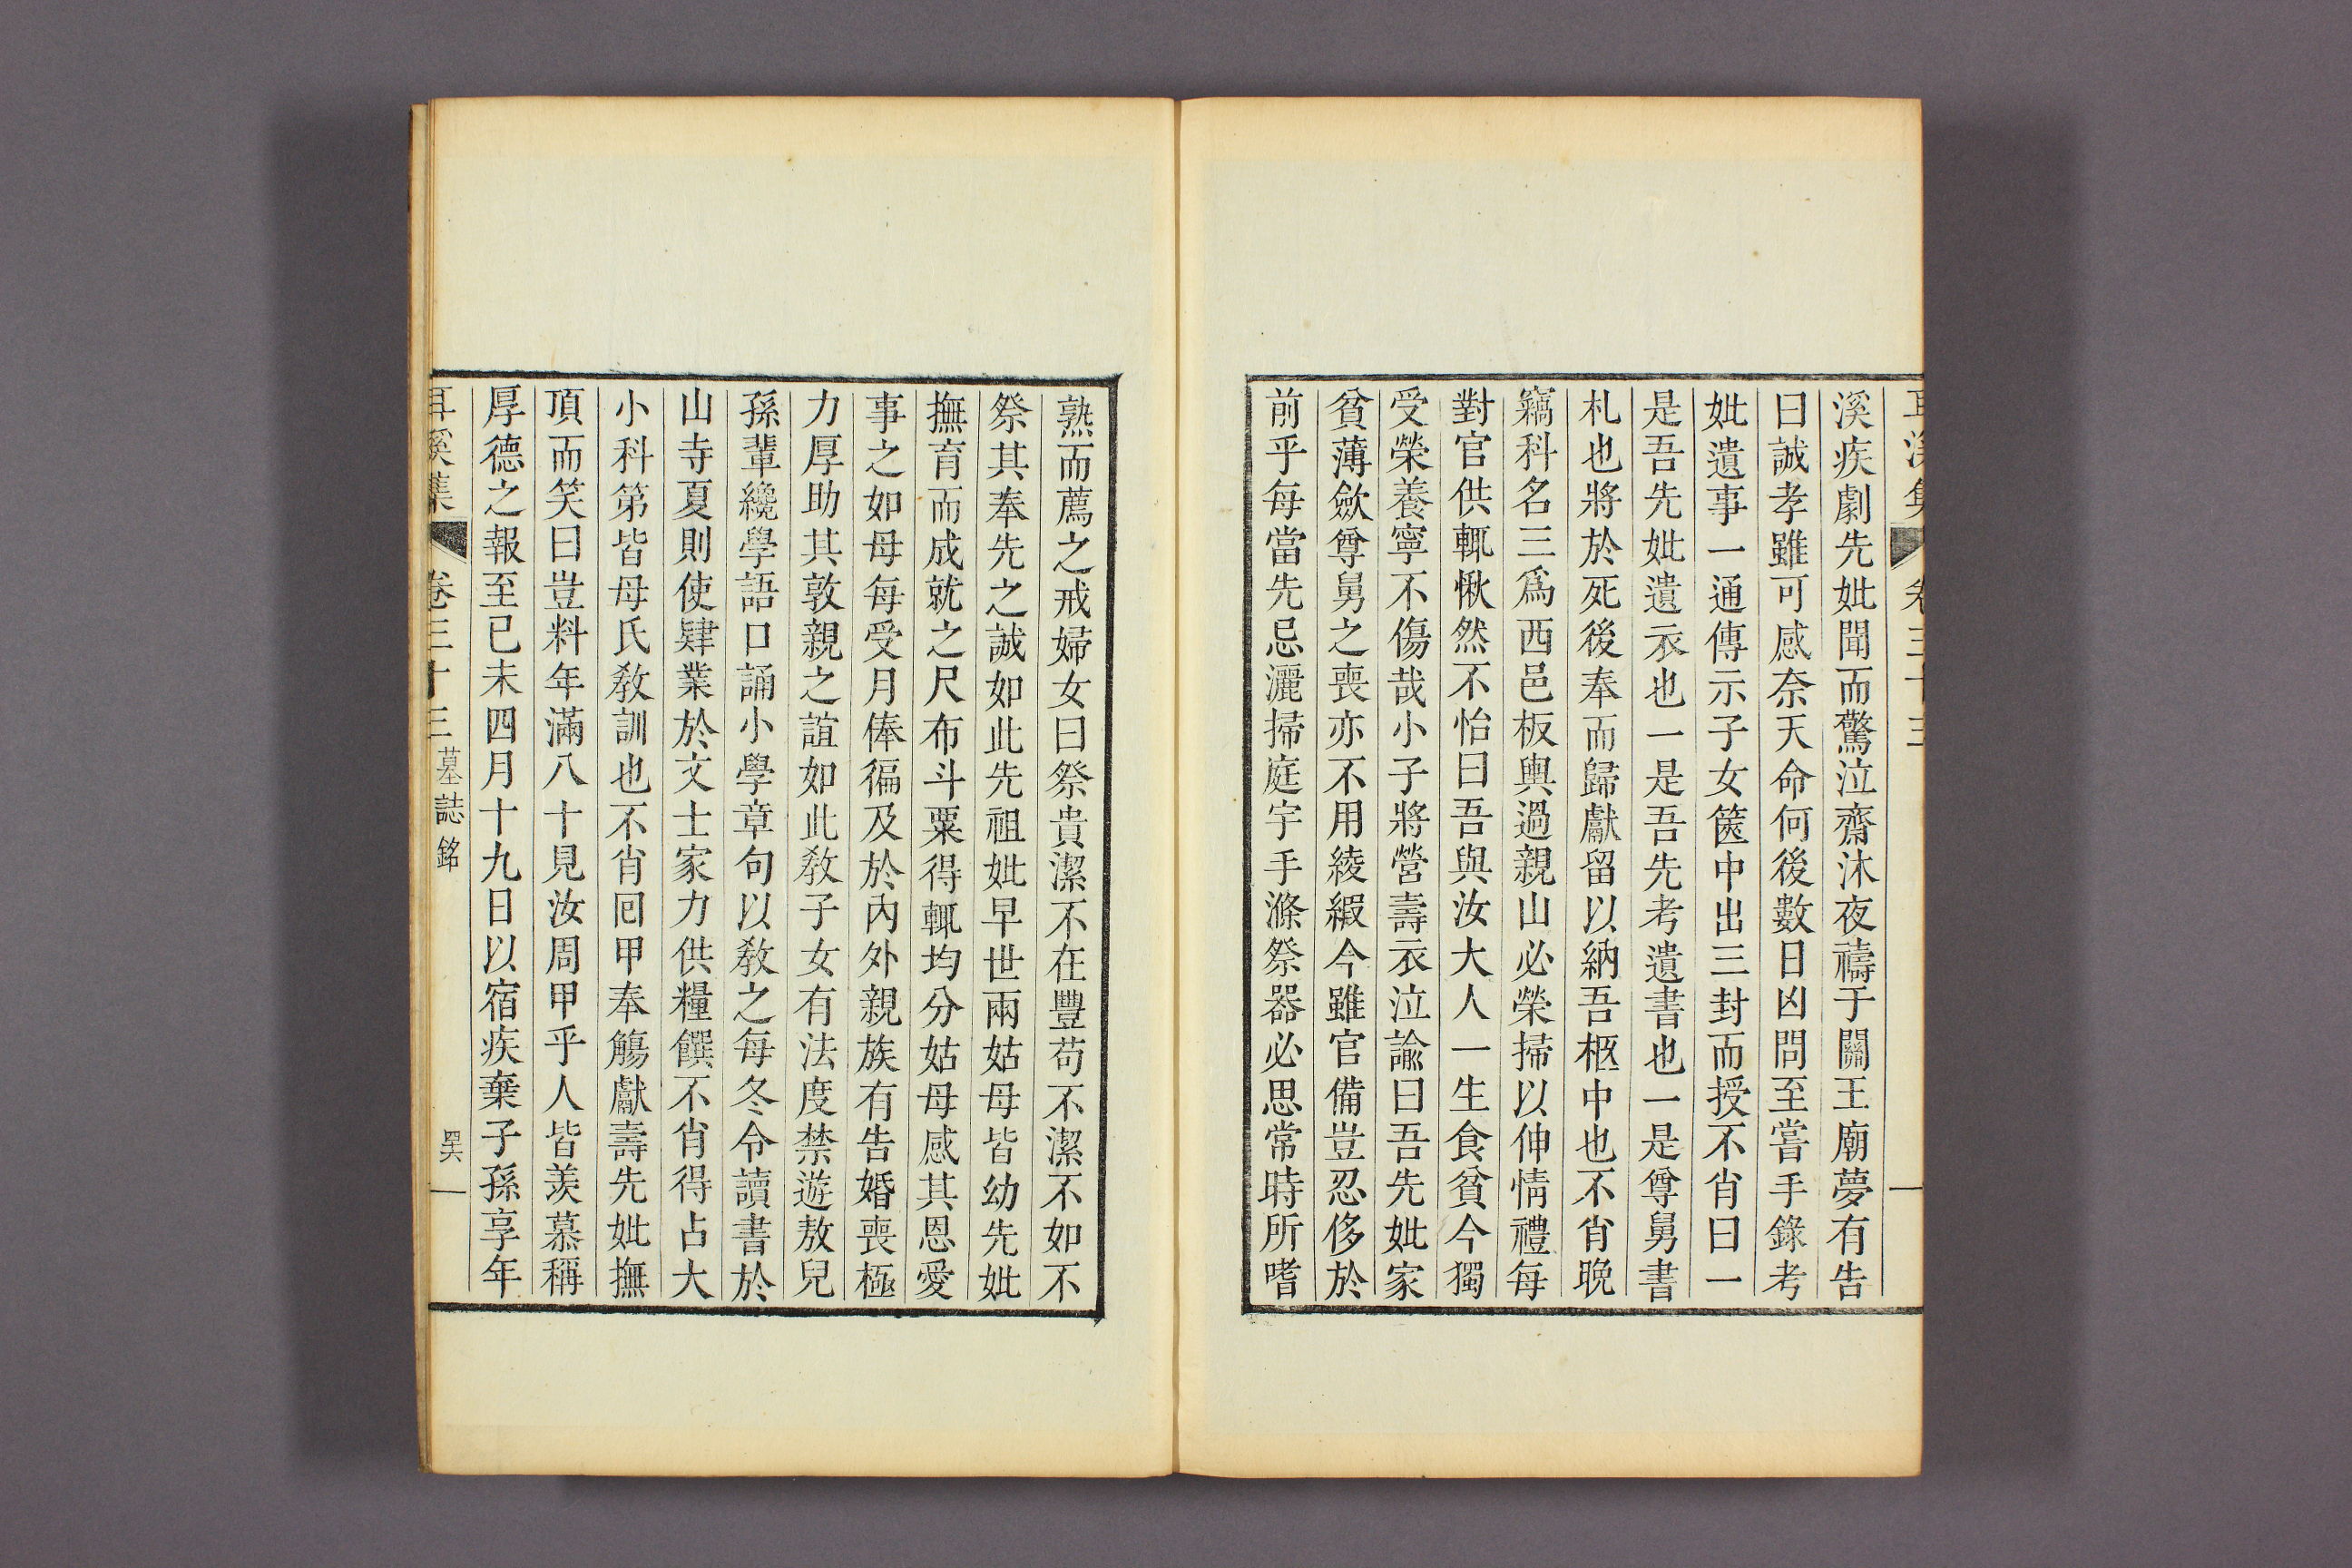 耳溪集 卷三十三
溪疾劇先妣聞而驚泣齋沐夜禱于關王廟夢有告
曰誠孝雖可感奈天命何後數日凶問至嘗手錄考
妣遺事一通傳示子女篋中出三封而授不肖曰一
是吾先妣遺衣也一是吾先考遺書也一是尊舅書
札也將於死後奉而歸獻留以納吾柩中也不肖晩
竊科名三爲西邑板輿過親山必榮掃以伸情禮每
對官供輒愀然不怡曰吾與汝大人一生食貧今獨
受榮養寧不傷哉小子將營壽衣泣諭曰吾先妣家
貧薄斂尊舅之喪亦不用綾緞今雖官備豈忍侈於
前乎每當先忌灑掃庭宇手滌祭器必思常時所嗜
熟而薦之戒婦女曰祭貴潔不在豐苟不潔不如不
祭其奉先之誠如此先祖妣早世兩姑母皆幼先妣
撫育而成就之尺布斗粟得輒均分姑母感其恩愛
事之如母每受月俸徧及於內外親族有告婚喪極
力厚助其敦親之誼如此敎子女有法度禁遊敖兒
孫輩纔學語口誦小學章句以敎之每冬令讀書於
山寺夏則使肄業於文士家力供糧饌不肖得占大
小科第皆母氏敎訓也不肖回甲奉觴獻壽先妣撫
頂而笑曰豈料年滿八十見汝周甲乎人皆羨慕稱
厚德之報至已未四月十九日以宿疾棄子孫享年
耳溪集 卷三十三 墓誌銘 四六